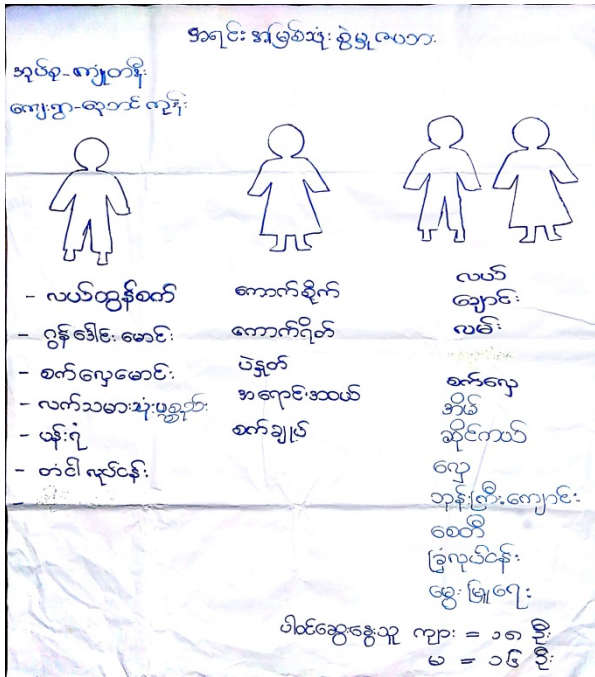 အရင်းအမြစ်သုံးစွဲမှုဇယား
အုပ်စု-ကျုံတနီး
ကျေးရွာ-ဆူဘင်ကုန်း
- လယ်ထွန်စက်
- ဂွန်ဒေါင်းမောင်း
- စက်လှေမောင်း
- လက်သမားသုံးပစ္စည်း
- ပန်းရံ
- တံငါလုပ်ငန်း
ကောက်စိုက်
ကောက်ရိတ်
ပဲနှုတ်
အရောင်းအဝယ်
စက်ချုပ်
လယ်
ချောင်း
လမ်း
စက်လှေ
အိမ်
ဆိုင်ကယ်
လှေ
ဘုန်းကြီးကျောင်း
စေတီ
ခြံလုပ်ငန်း
မွေးမြူရေး
ပါဝင်ဆွေးနွေးသူ ကျား = ၁၈ ဦး
မ = ၁၆ ဦး